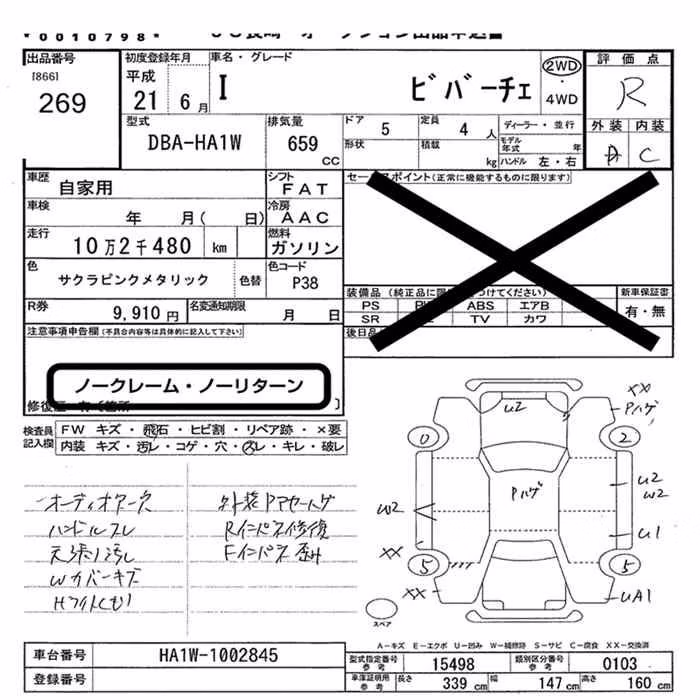 *0010798*
出品番号
[866]
269
初度登録年月
平成
21 6月
車名・グレード
I ビバーチェ
2WD
・
4WD
評価点
R
外装 内装
D C
型式
DBA-HA1W
排気量
659
cc
ドア 5
定員 4 人
形状
積載 kg
ディーラー・並行
モデル年式 年
ハンドル 左・右
車歴
自家用
シフト
FAT
車検
年 月( 日)
冷房
AAC
走行
10万2千480 km
燃料
ガソリン
色
サクラピンクメタリック
色替
色コード
P38
R券
9,910円
名変通知期限
月 日
セールスポイント(正常に機能するものに限ります)
装備品 (純正品に限
つけてください)
新車保証書
PS ABS エアB
SR TV カワ
有・無
後日品
注意事項申告欄(不具合内容等は具体的に記入して下さい)
ノークレーム・ノーリターン
検査員
記入欄
FW キズ・飛石・ヒビ割・リペア跡・×要
内装 キズ・汚レ・コゲ・穴・スレ・キレ・破レ
オーディオアース
ハンドルスレ
天張り汚し
Wカバーキズ
外装Pアセ・ハゲ
Rインパネ修復
Fインパネ歪み
XX
Pハゲ
U2
0
2
U2
W2
Pハゲ
W2
U1
XX
5
5
XX
UA1
スペア
A-キズ E-エクボ U-凹み W-補修跡 S-サビ C-腐食 XX-交換済
車台番号
HA1W-1002845
登録番号
型式指定番号
参考
15498
類別区分番号
参考
0103
車庫証明用
参考
長さ 339 cm
幅 147 cm
高さ 160 cm